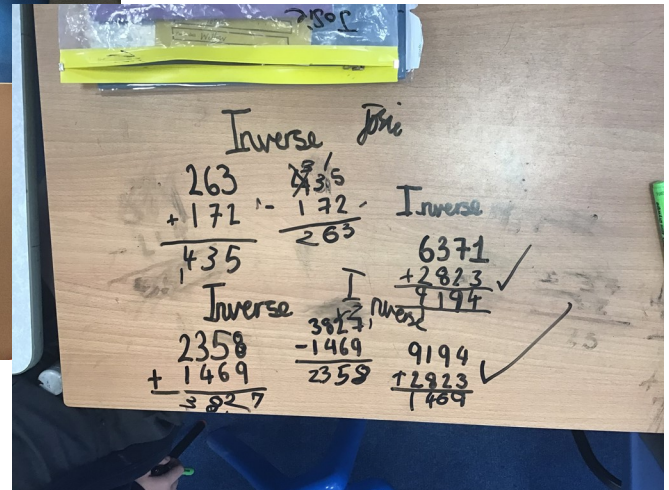 Josie
Inverse Josie
263
+ 172
435
435
- 172
263
Inverse
6371
+2823
9194
Inverse
2358
+ 1469
3827
Inverse
3827
-1469
2358
9194
+2823
1469